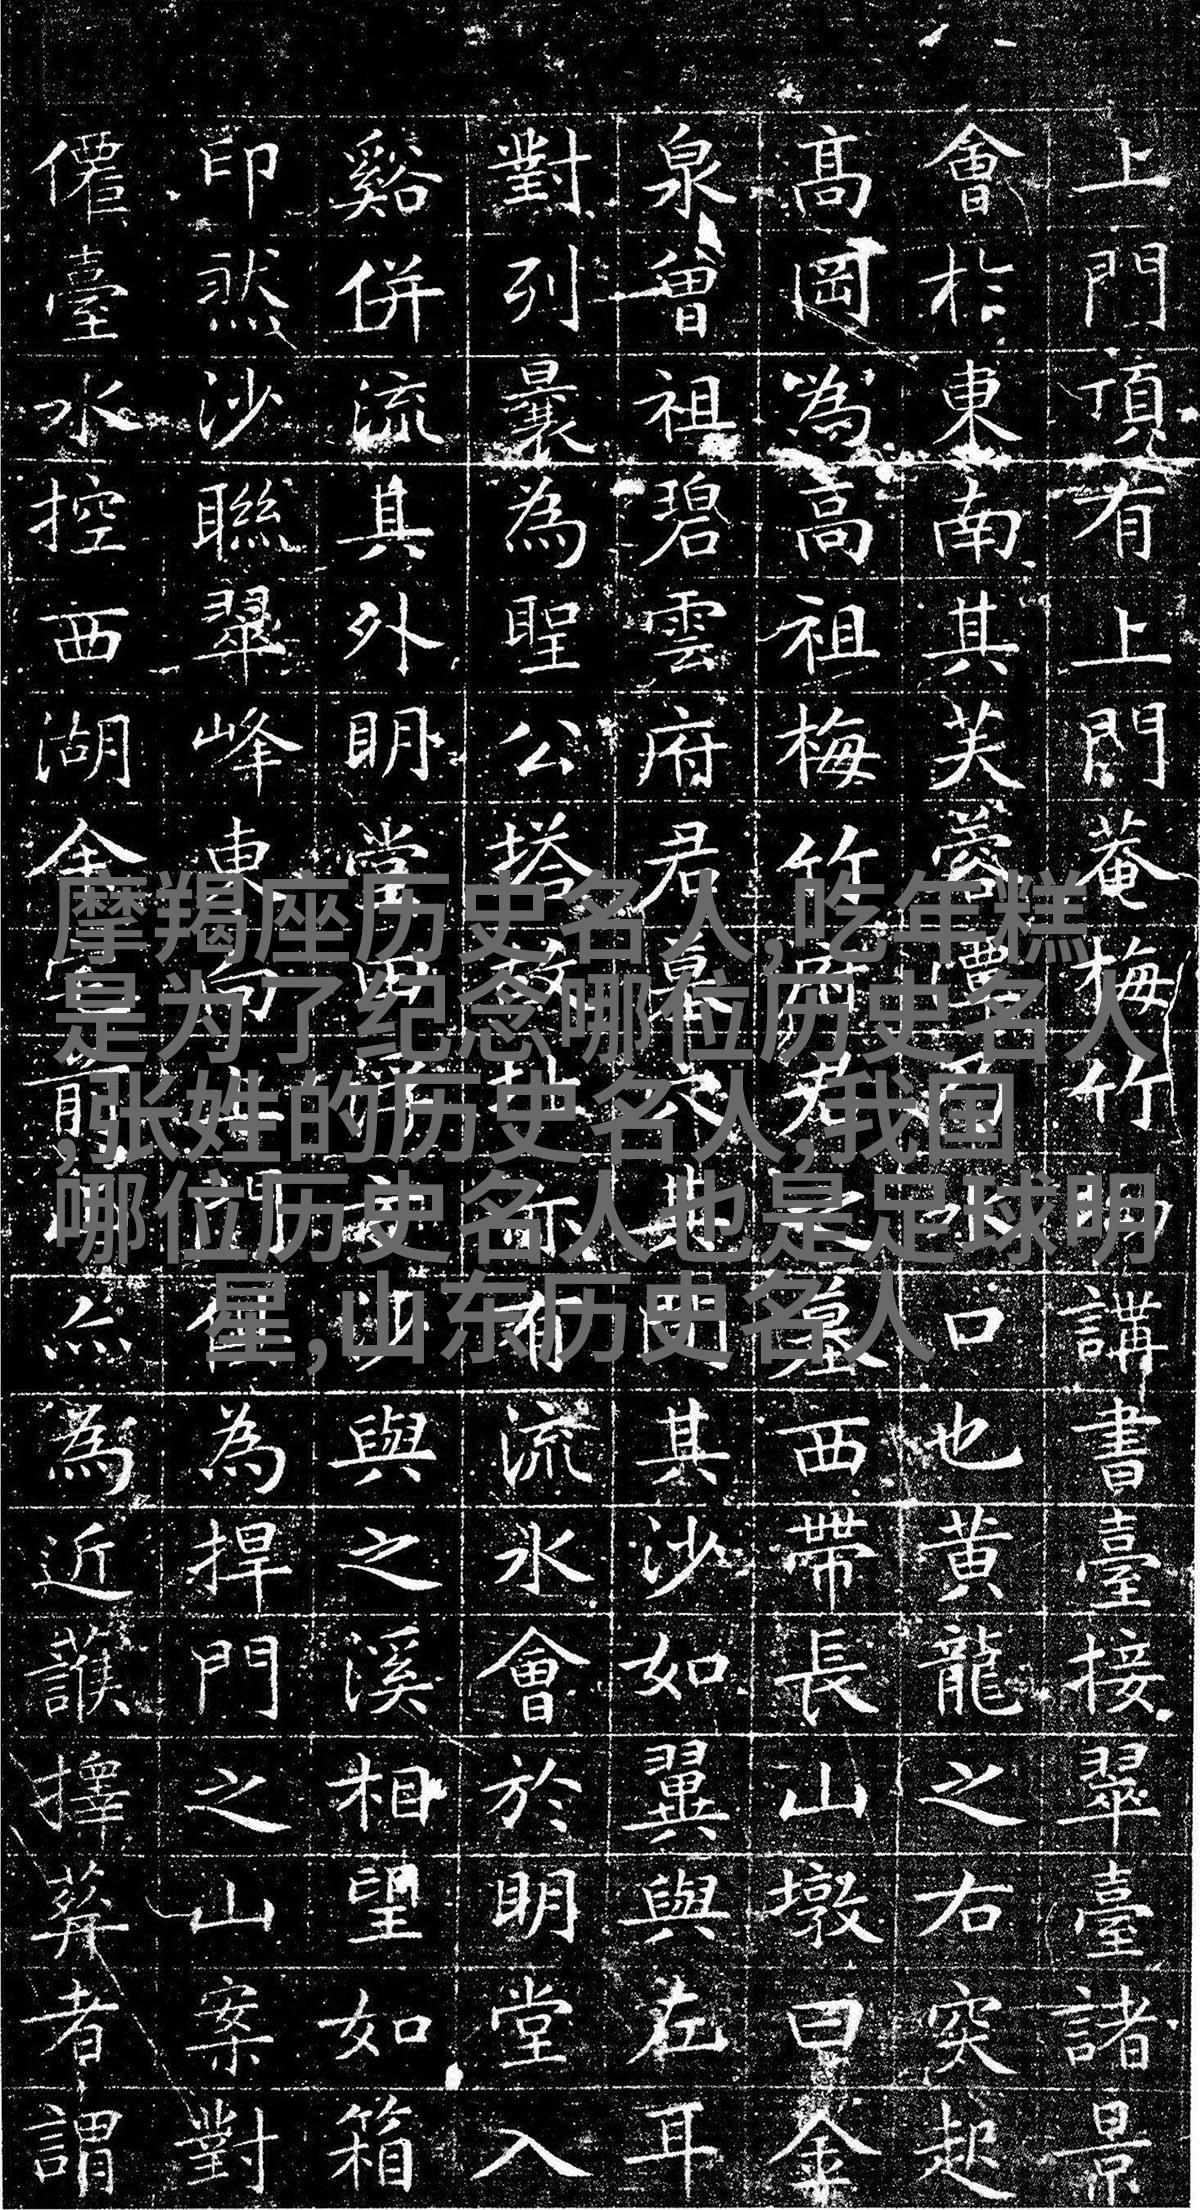 上門頂有上門菴梅竹講書臺接翠臺諸景
會於東南其芙蓉潭口也黃龍之右突起
高岡為高祖梅竹府君之墓西帶長山墩曰金
泉曾祖碧雲府君墓穴其門其沙如翼與左耳
對列曩為聖公塔故址有流水會於明堂入
谿併流其外明堂沙與之溪相望如箱
印然沙聯翠峰東向為捍門之山案對
僊臺水控西湖金前為近擇葬者謂
摩羯座历史名人,吃年糕
是为了纪念哪位历史名人
,张姓的历史名人,我国
哪位历史名人也是足球明
星,山东历史名人